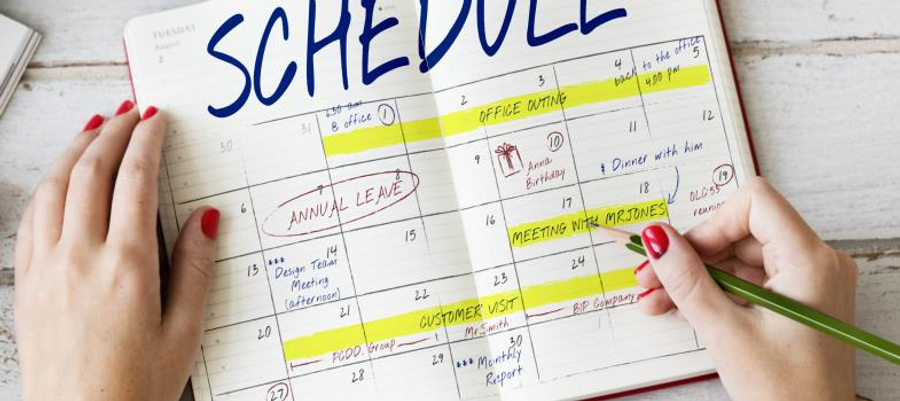 TUESDAY
August
2
SCHEDULE
30
31
6.30 am
@ office
1
2
3
4
back to the office
4.00 pm
5
OFFICE OUTING
6
7
8
ANNUAL LEAVE
9
10
Anna
Birthday
11
12
Dinner with him
13
14
*** Design Team
Meeting
(afternoon)
15
16
17
18
MEETING WITH MR.JONES
19
reunion
20
21
22
23
24
CUSTOMER VISIT
PCDD. Group
Mr.Smith
BIP Company
27
28
29
30
*** Monthly
Report